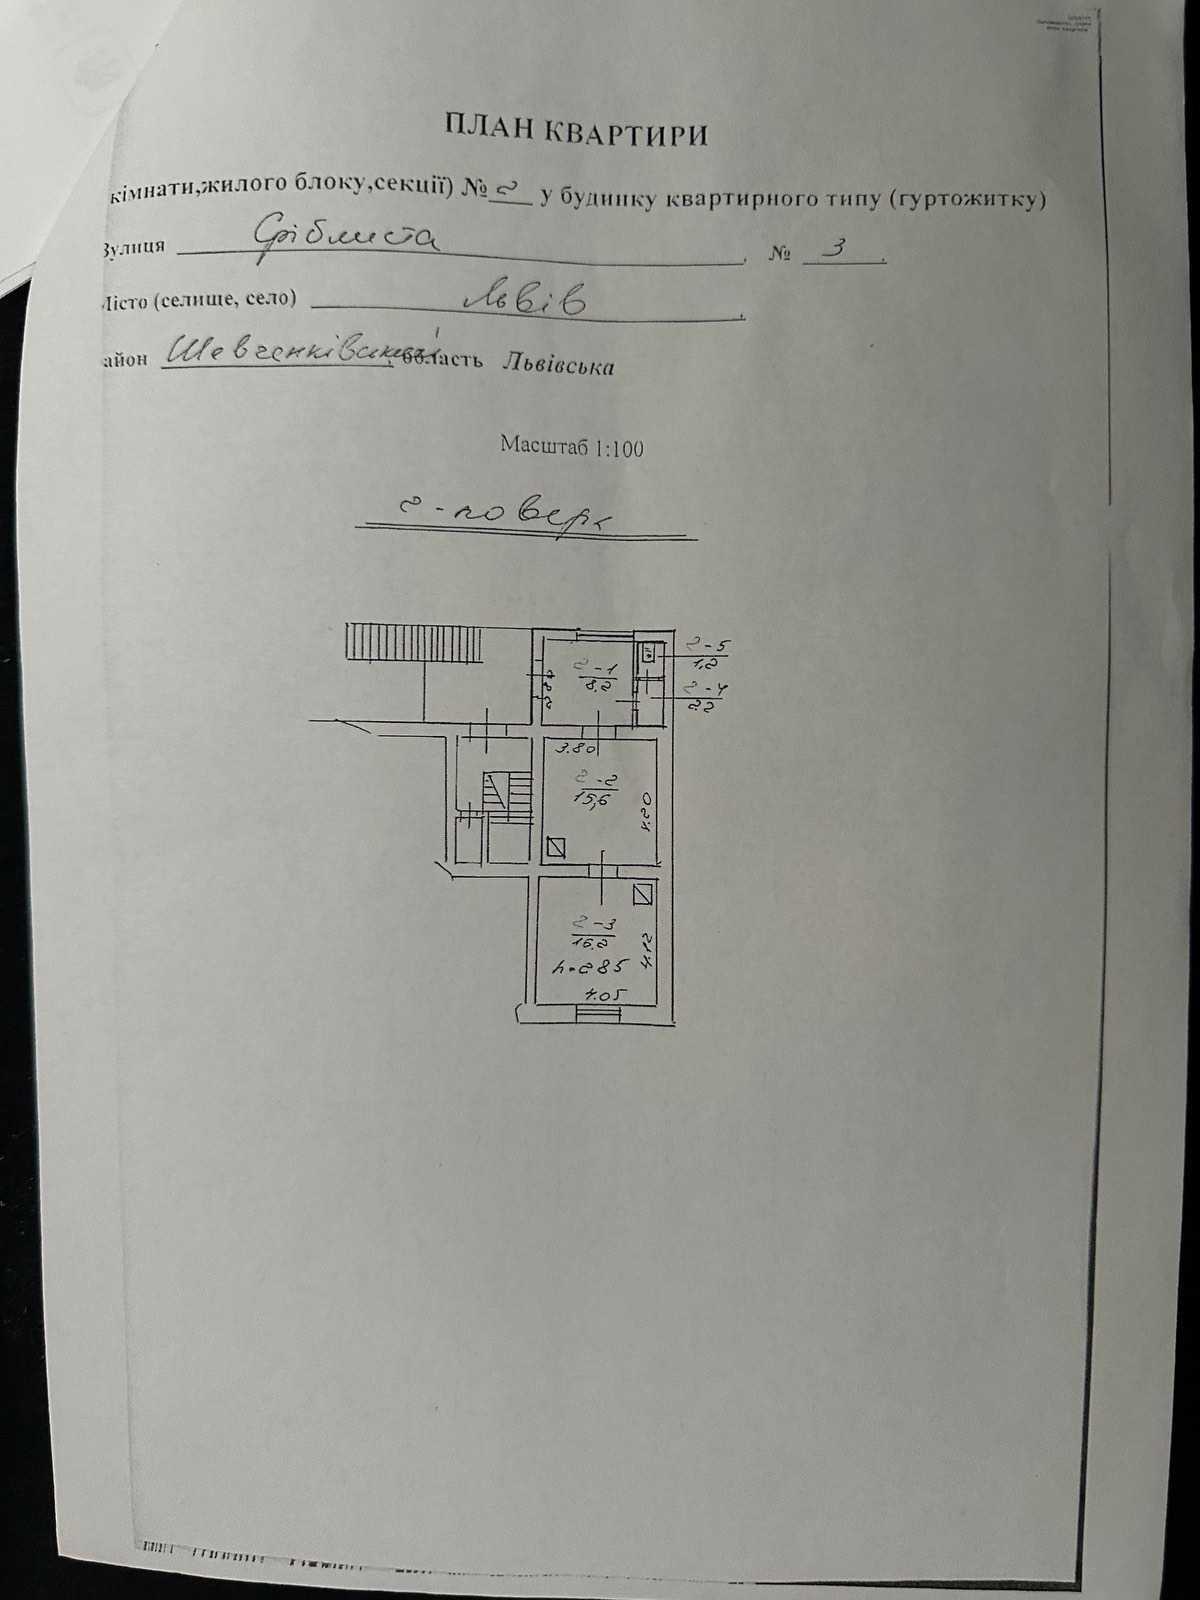 ПЛАН КВАРТИРИ
кімнати,жилого блоку,секції) № 2 у будинку квартирного типу (гуртожитку)
Вулиця Сріблиста, № 3.
Місто (селище, село) Львів,
айон Шевченківський, область Львівська
Масштаб 1:100
2-поверх
2-5
1,2
2-1
8,2
2-4
2.2
3.80
2-2
15,6
4.20
2-3
16,2
h=285
4.12
4.05